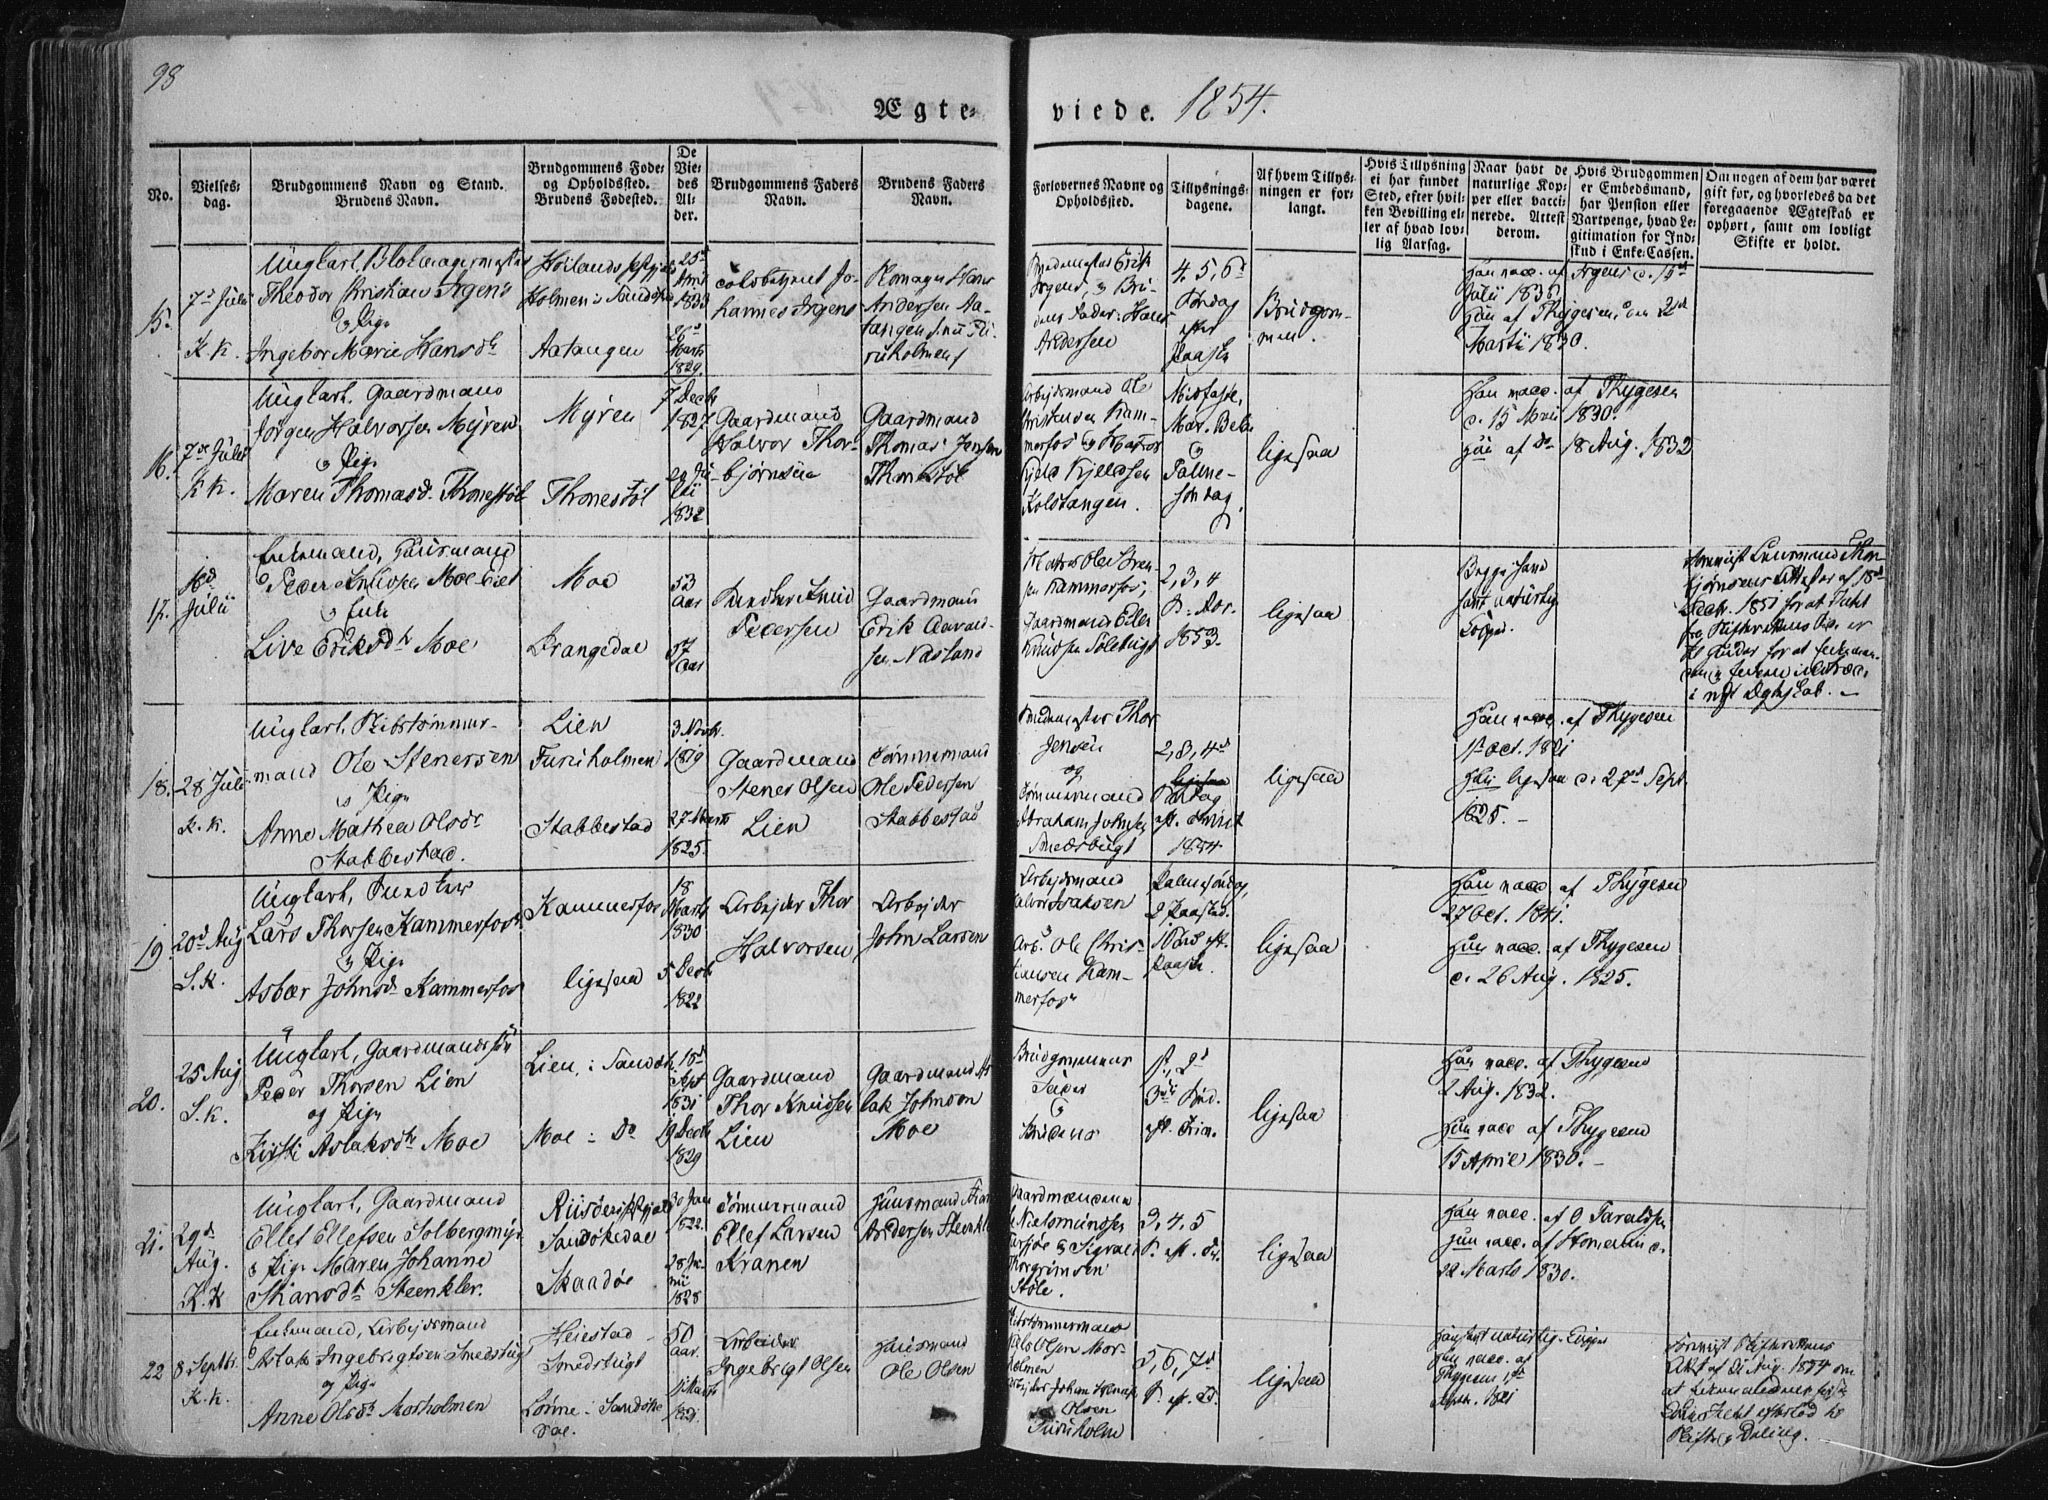 98
Ægte-
viede. 1854.
No.
Vielses-
dag.
Brudgommens Navn og Stand.
Brudens Navn.
Brudgommens Føde-
og Opholdssted.
Brudens Fødested.
De
Vie-
des
Al-
der.
Brudgommens Faders
Navn.
Brudens Faders
Navn.
Forlovernes Navne og
Opholdssted.
Tillysnings-
dagene.
Af hvem Tillys-
ningen er for-
langt.
Hvis Tillysning
ei har fundet
Sted, efter hvil-
ken Bevilling el-
ler af hvad lov-
lig Aarsag.
Naar havt de
naturlige Kop-
per eller vacci-
nerede. Attest
derom.
Hvis Brudgommen
er Embedsmand,
har Pension eller
Vartpenge, hvad Le-
gitimation for Ind-
skud i Enke-Cassen.
Om nogen af dem har været
gift før, og hvorledes da det
foregaaende Ægteskab er
ophørt, samt om lovligt
Skifte er holdt.
15.
7d Julii
K. K.
Ungkarl,
Theodor Christian Irgens
og Pige
Ingebor Marie Hansdr
Holmen i Sandøk
Aatangen
25d
April
1833
28d
Marts
1829.
Johannes Irgens
Hans
Andersen Aa-
tangen
Erik
Irgens, og Bru-
dens Fader: Hans
Andersen
4, 5, 6d
Søndag
efter
Paaske
Brudgom-
men.
Han vacc. af Irgens
Julii 1836
Hun af Thygesen, den 22d
Martii 1830.
16.
7de Julii
K K.
Ungkarl, Gaardmand
Jørgen Halvorsen Myren
og Pige
Maren Thomasd. Thonestøl
Myren
Thonestøl
7 Decbr
1827
Julii
1832
Gaardmand
Halvor Thor-
bjørnsen
Gaardmand
Thomas Jensen
Thonestøl
Arbejdsmand Ole
Christensen Kam-
merfos og
Kjeld Kjeldsen
Kolstangen.
Midfaste,
Mar. Beb.
og
Palme-
søndag.
ligesaa
Han vacc. af Thygesen
d. 15 Mai 1830.
Hun af do 18 Aug. 1832
17.
Julii
Enkemand, Huusmand
Peder Knudsen Moe Eiet
og Enke
Live Eriksdr Moe
Moe
Drangedal
53
Aar
57
Aar
Knud
Pedersen
Gaardmand
Erik Aavald-
sen Næsland
Ole
Kammerfos,
Gaardmand
Knudsen
2, 3, 4
S. Adv.
1853.
ligesaa
Begge have
havt naturlig
Copper.
Thor-
bjørnsens Attest af 18d
Decbr. 1851 for at Intet
i nyt Ægteskab. -
18.
28 Juli
K. K.
Ungkarl, Skibstømmer-
mand Ole Stenersen
og Pige
Anne Mathea Olsdr
Stabbestad.
Lien
Furuholmen
Stabbestad
3 Novbr.
1819
27 Marts
1825.
Gaardmand
Stener Olsen
Lien
Tømmermand
Ole Pedersen
Stabbestad
Thor
Jensen
og
Tømmermand
Abraham Johnsen
Smedsbugt
2, 3, 4d
Søndag
eft. Trinit
1854
ligesaa
Han vacc. af Thygesen
1st Oct. 1821
Hun ligesaa d. 27d Sept.
1825. -
19.
20d Aug
S. K.
Ungkarl,
Lars Thorsen Kammerfos
og Pige
Asbør Johnsd Kammerfos
Kammerfos
ligesaa
18
Marts
1830
5 Decbr
1822
Arbejder Thor
Halvorsen
Arbejder
John Larsen
Arbejdsmand
Halvor Isaksen
og
Arb. Ole Chris-
tiansen Kam-
merfos
Palmesøndag,
2 Paasked.
1 Sønd. eft.
Paaske.
ligesaa
Han vacc. af Thygesen
27 Oct. 1841.
Hun vacc. af Thygesen
d. 26 Aug. 1825.
20.
25 Aug
S. K.
Ungkarl, Gaardmandssøn
Peder Thorsen Lien
og Pige
Kirsti Aslaksdr Moe
Lien, i Sandøk.
Moe i Do
18d
Sept
1831
19 Decbr
1829
Gaardmand
Thor Knudsen
Lien
Gaardmand As-
lak Johnson
Moe
Brudgommens
Fader
og
Brudens
1st, 2d
3die Sønd.
eft. Trin.
ligesaa
Han vacc. af Thygesen
2 Aug. 1832.
Hun vacc af Thygesen
15 April 1830. -
21.
29d
Aug.
K. K
Ungkarl, Gaardmand
Ellef Ellefsen Solbergmyr
og Pige Maren Johanne
Hansdr Steenkler.
Sandøkedal
Skaadøe
30 Jan
1822.
28 Ju-
nii
1828
Tømmermand
Ellef Larsen
Kranen
Huusmand Hans
Andersen Steenkler
Gaardmændene
Thorgrimsen
Støle.
3, 4, 5
S. eft. Tr.
ligesaa
Han vacc. af O Taraldsen
Hun vacc. af
22 Marts 1830.
22
8 Septbr.
K. K.
Enkemand, Arbejdsmand
Aslak Ingebrigtsen Smedsbugt
og Pige
Anne Olsdr Morholmen
Heiestad
Smedsbugt
i Sandøke
dal.
50
Aar.
1821.
Arbeider
Ingebrigt Olsen
Huusmand
Ole Olsen
Skibstømmermand
Olsen Mor-
holmen
Arbejder Johan
Olsen
Furuholm
5, 6, 7d
S. eft. Tr.
ligesaa
Han havt naturlig. Copper
Hun vacc. af
Thygesen 1st
1821
Aug. 1854 om
Skifte og Deling.